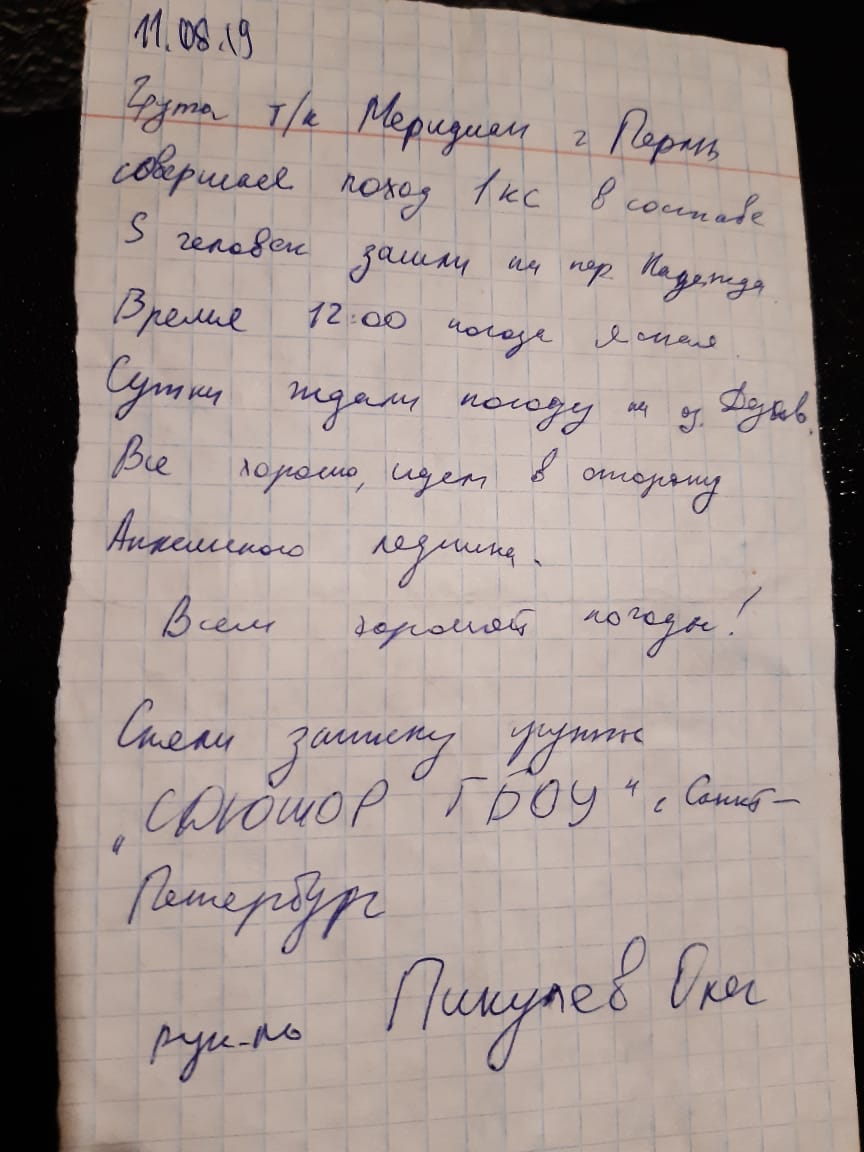 11.08.19
Група т/к Меридиан г Пермь
совершает поход 1кс в составе
5 человек зашли на пер. Надежда
Время 12:00 погода ясная.
Сутки ждали погоду на оз.
Все хорошо, идем в сторону
ледника.
Всем хорошей погоды!
Сняли записку группы
"СДЮШОР ГБОУ" г Санкт-
Петербург
рук-ль Пикулев Олег